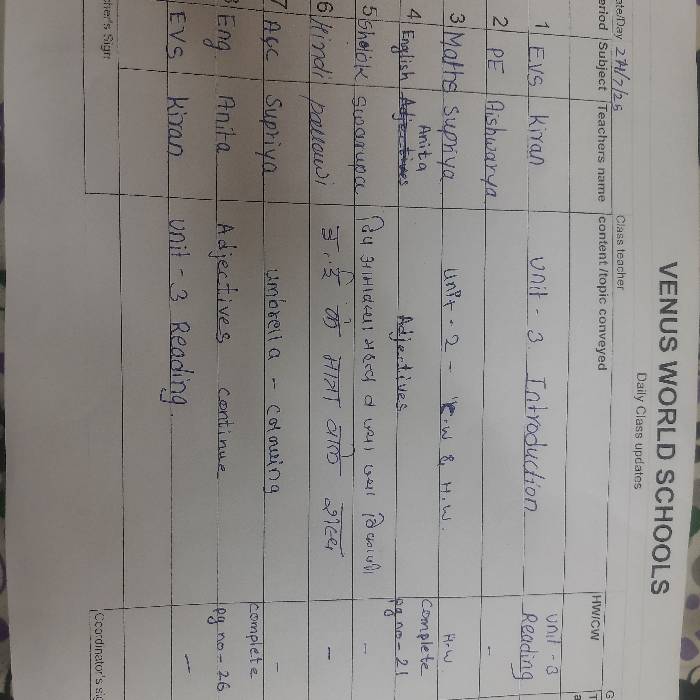 VENUS WORLD SCHOOLS
Daily Class updates
Class teacher
Period Subject Teachers name content /topic conveyed HW/CW
1 EVS Kiran Unit - 3 Introduction Unit - 3 Reading
2 PE Aishwarya -
3 Maths Supriya Unit - 2 - C.W & H.W. H.W
4 English Anita Adjectives Complete pg no - 21
5 Shlok Swarupa -
6 Hindi pallawi -
7 A&C Supriya umbrella - colouring -
Eng. Anita Adjectives continue complete pg no - 26
EVS Kiran Unit - 3 Reading. -